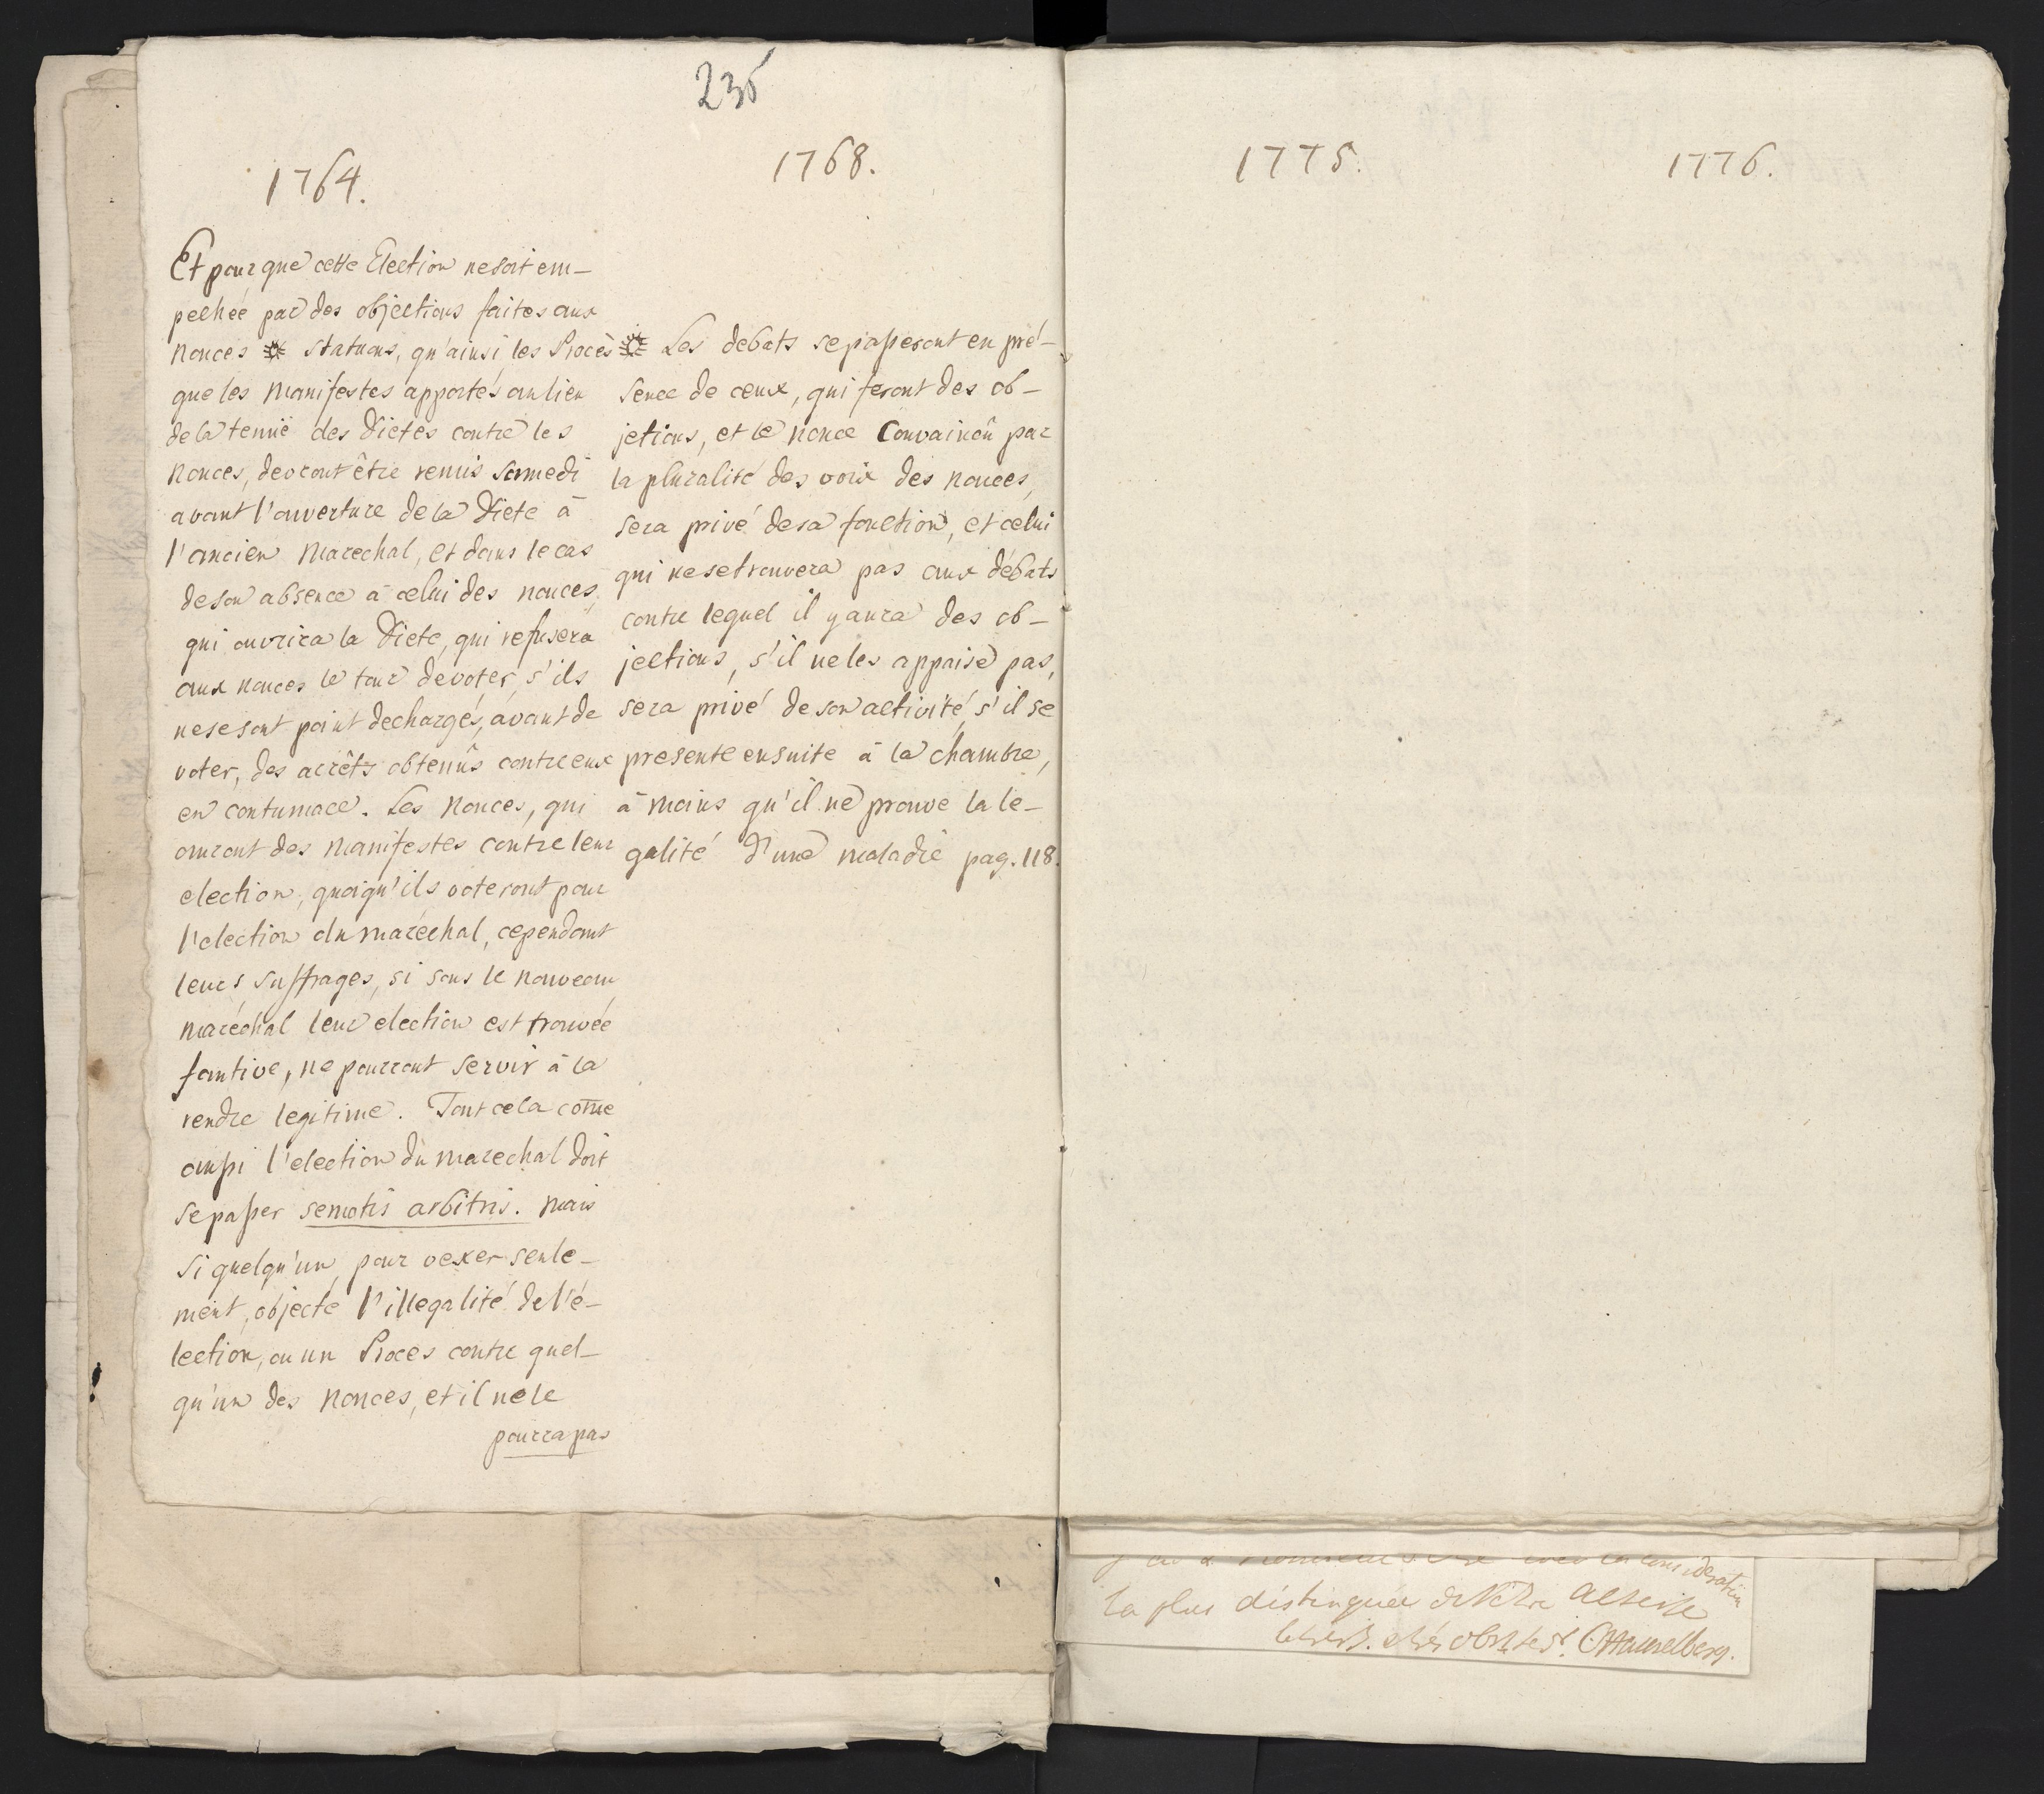 236
1764.
Et pour que cette Election ne soit em-
pechée par des objections faites aux
Nonces ☼ statuons, qu'ainsi les Procès
que les Manifestes apportés au lieu
de la tenuë des Dietes contre les
Nonces, devront être remis samedi
avant l'ouverture de la Diete à
l'ancien Marechal, et dans le cas
de son absence à celui des nonces,
qui ouvrira la Diete, qui refusera
aux nonces le tour de voter, s'ils
ne se sont point dechargés, avant de
voter, des arrêts obtenûs contre eux
en contumace. Les Nonces, qui
auront des Manifestes contre leur
election, quoiqu'ils voteront pour
l'election du maréchal, cependant
leurs suffrages, si sous le nouveau
maréchal leur election est trouvée
fautive, ne pourront servir à la
rendre legitime. Tout cela come
aussi l'election du marechal doit
se passer semotis arbitris. Mais
si quelqu'un pour vexer seule-
ment, objecte l'illegalité de l'é-
lection, ou un Proces contre quel-
qu'un des Nonces, et il ne le
pourra pas
1768.
☼ Les debats se passeront en pré-
sence de ceux, qui feront des ob-
jetions, et le nonce Convaincû par
la pluralité des voix des nonces,
sera privé de sa fonction, et celui
qui ne se trouvera pas aux débats
contre lequel il y aura des ob-
jections, s'il ne les appaise pas,
sera privé de son activité, s'il se
presente ensuite à la chambre,
à moins qu'il ne prouve la le-
galité d'une maladie pag. 118.
1775.
1776.
consideration
la plus distinguée de Votre Altesse